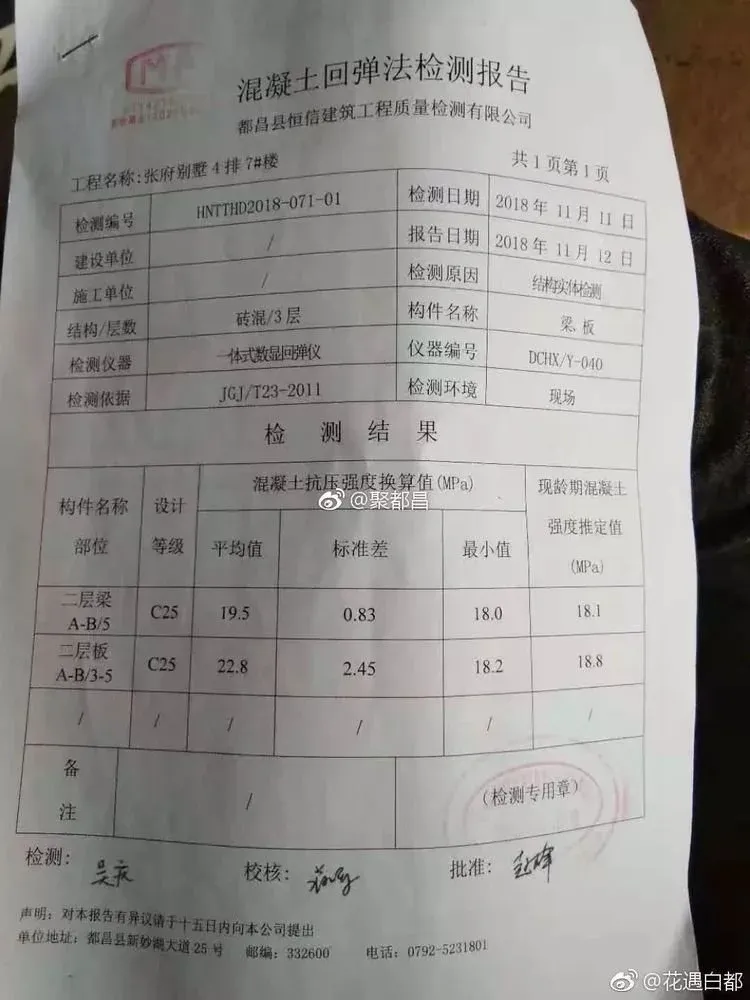 混凝土回弹法检测报告
都昌县恒信建筑工程质量检测有限公司
工程名称:张府别墅4排7#楼 共1页第1页
检测编号 HNTTHD2018-071-01 检测日期 2018年11月11日
建设单位 / 报告日期 2018年11月12日
施工单位 / 检测原因 结构实体检测
结构/层数 砖混/3层 构件名称 梁、板
检测仪器 一体式数显回弹仪 仪器编号 DCHX/Y-040
检测依据 JGJ/T23-2011 检测环境 现场
检测结果
构件名称部位 设计等级 混凝土抗压强度换算值(MPa) 现龄期混凝土强度推定值(MPa)
平均值 标准差 最小值
@聚都昌
二层梁 A-B/5 C25 19.5 0.83 18.0 18.1
二层板 A-B/3-5 C25 22.8 2.45 18.2 18.8
/ / / / / /
备注 / (检测专用章)
检测: 校核: 批准:
声明:对本报告有异议请于十五日内向本公司提出
单位地址:都昌县新妙湖大道25号 邮编:332600 电话:0792-5231801
@花遇白都